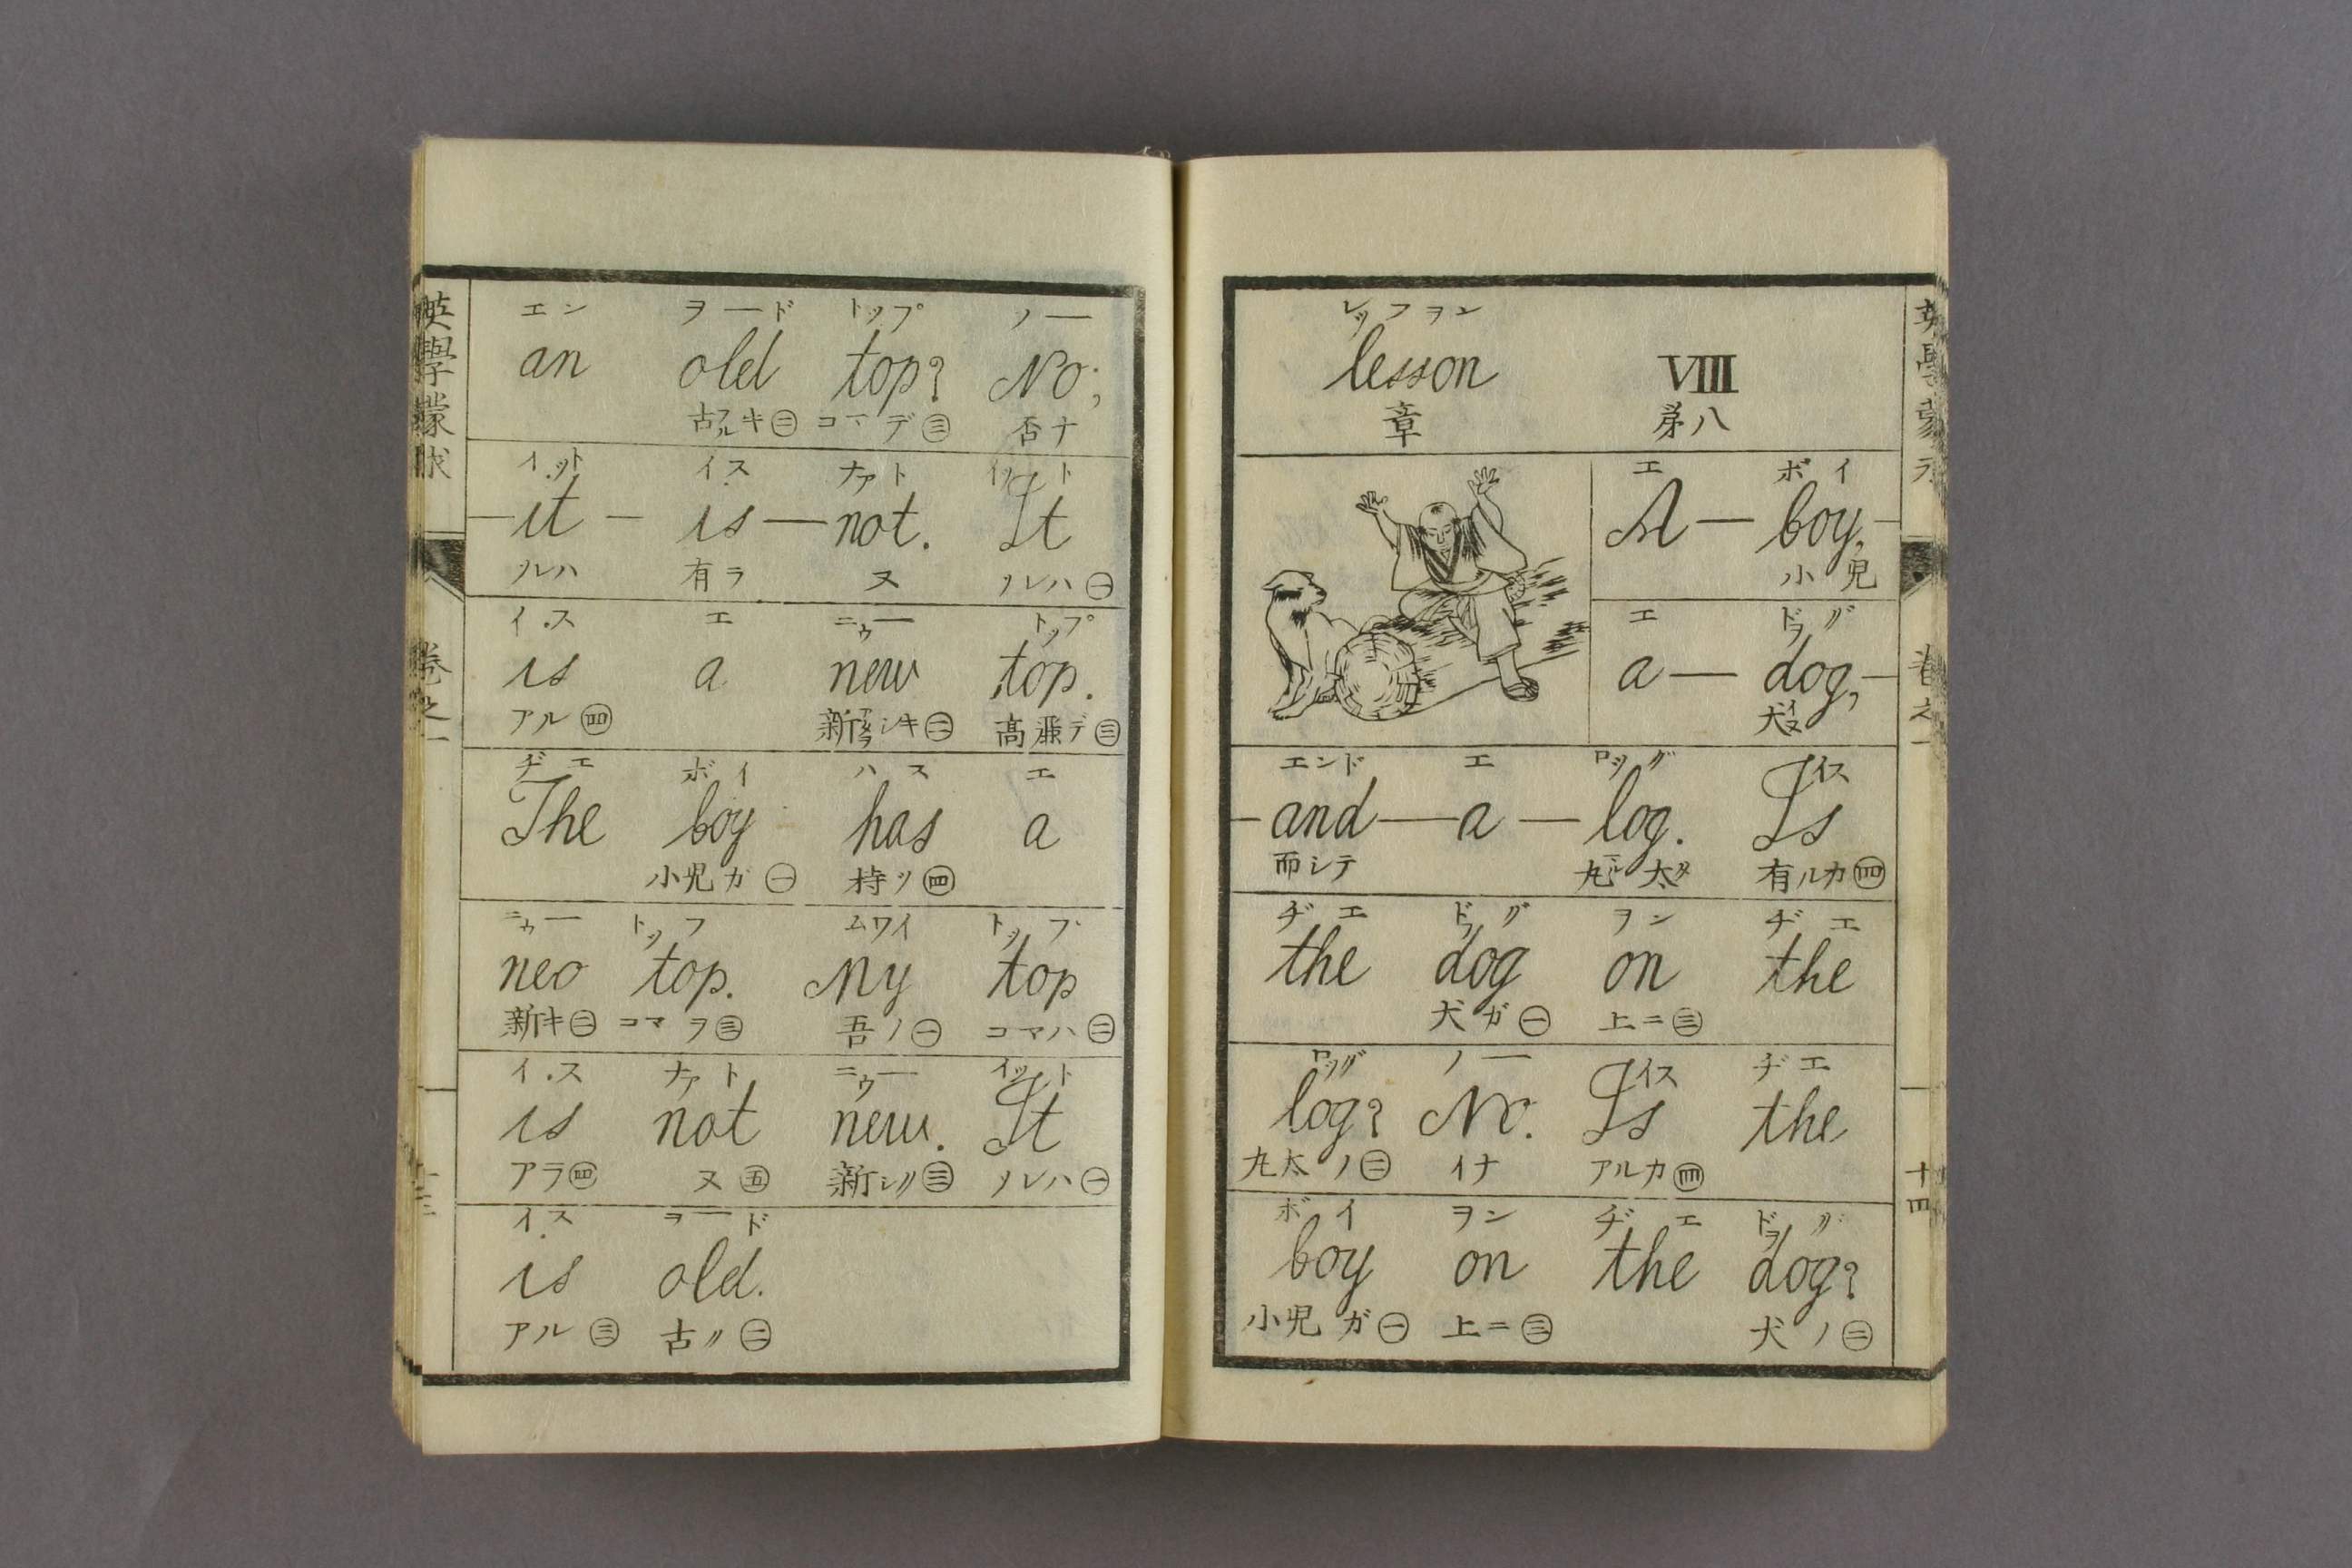 エン ヲード トップ ノー
an old top? No;
古フルキ㊁ コマデ㊂ 否ナ
イット イス ナアト イット
it is not. It
ソレハ 有ラ ヌ ソレハ㊀
イス エ ニウー トップ
is a new top.
アル㊃ 新アタラシキ㊁ デ㊂
ヂエ ボイ ハス エ
The boy has a
小児ガ㊀ 持ツ㊃
ニウー トップ ムワイ トップ
neo top. My top
新キ㊁ コマヲ㊂ 吾ノ㊀ コマハ㊁
イス ナアト ニウー イット
is not new. It
アラ㊃ ヌ㊄ 新シク㊂ ソレハ㊀
イス ヲード
is old.
アル㊂ 古ク㊁
英學
卷之一
十三
レッフヲン
lesson VIII
章 第八
エ ボイ
A boy,
小児
エ ドヲグ
a dog,
犬イヌ
エンド エ ロッグ イス
and a log. Is
而シテ 丸マル太タ 有ルカ㊃
ヂエ ドヲグ ヲン ヂエ
the dog on the
犬ガ㊀ 上ニ㊂
ロッグ ノー イス ヂエ
log? No. Is the
丸太ノ㊁ イナ アルカ㊃
ボイ ヲン ヂエ ドヲグ
boy on the dog?
小児ガ㊀ 上ニ㊂ 犬ノ㊁
十四